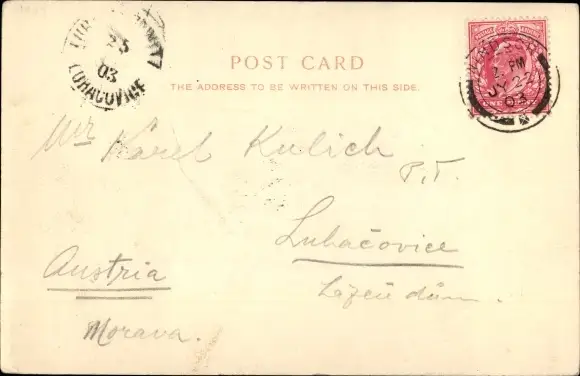 LUHACOVICE
25
03
POST CARD
THE ADDRESS TO BE WRITTEN ON THIS SIDE.
PM
JY 22
03
Mr Karel Kulich
P.T.
Luhačovice
Austria
Lázeň dům.
Morava.